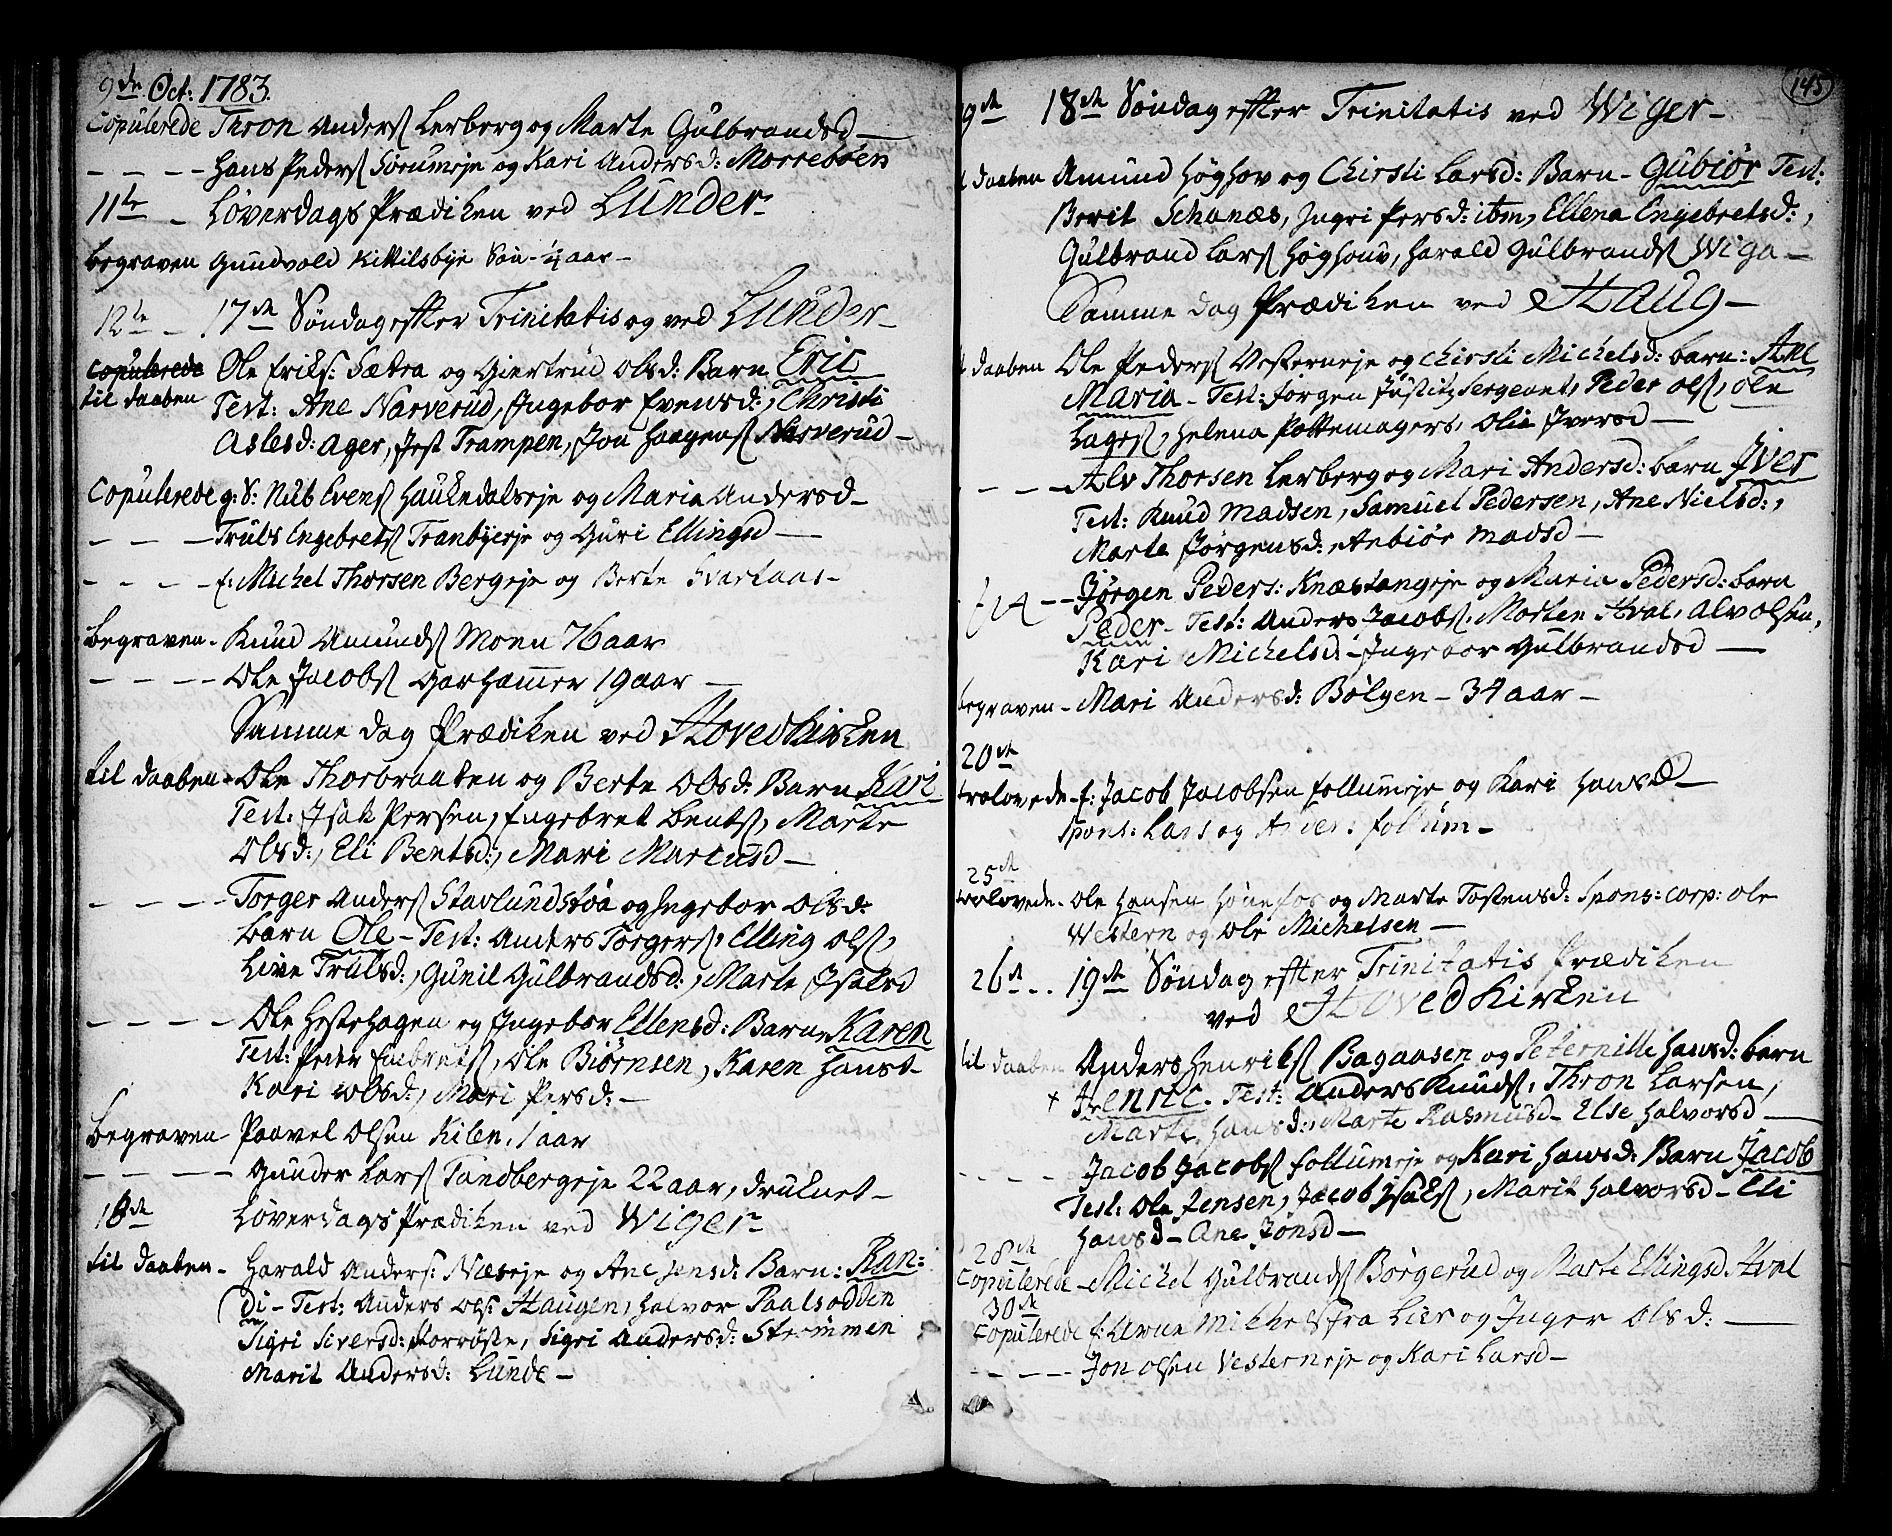 9de Oct: 1783.
Copulerede Thron Anders Lerberg og Marte Gulbrandsd —
— — — — Hans Peders Sørumeje og Kari Andersd: Morrebøen
11te — Løverdags Prædiken ved Lunder —
begraven Gundvold Kittilsbye Søn — ¼ aar —
12te — 17de Søndag efter Trinitatis og ved Lunder —
Copulerede Ole Eriks: Sætra og Giertrud Olsd: Barn Eric
til daaben Test: Ane Narverud, Ingebor Evensd:, Christi
Aslesd: Ager, Jost Trampen, Jon Haagens Narverud —
Copulerede g: S: Nub Evens Haukedalseje og Maria Andersd —
— — — Truls Engebrets Tranbyeje og Guri Ellingsd —
— — — — f: Michel Thorsen Bergeje og Berte Svartaas —
begraven — Knud Amunds Moen 76 aar
— — — — Ole Jacobs Gar Hammer 19 aar —
Samme dag Prædiken ved Hovedkirken
til daaben — Ole Thorbraaten og Berte Olsd: Barn Kari
Test: Isak Persen, Engebret Bents, Marte
Olsd:, Eli Bentsd:, Mari Marcusd —
— — — — Torger Anders Stavlundstøa og Ingebor Olsd:
barn Ole — Test: Anders Torgers, Elling Ols,
Live Trulsd:, Gunil Gulbrandsd:, Marte Isaksd
— — — — Ole Hestehagen og Ingebor Ellensd: Barn Karen
Test: Peder Embrets, Ole Biørnsen, Karen Hansd —
Kari Olsd:, Mari Persd: —
begraven — Paavel Olsen Kilen, 1 aar
— — — — Gunder Lars Tandbergeje 22 aar, druknet —
18de Løverdags Prædiken ved Wiger —
til daaben — Harald Anders: Næseje og Ane Jensd: Barn: Ran:
di — Test: Anders Ols: Haugen, Halvor Paalsødden
Sigri Siversd: Storrøste, Sigri Andersd: Strømmen
Marit Andersd: Lunde —
145
19de 18de Søndag efter Trinitatis ved Wiger —
daaben Amund Høghov og Chirsti Larsd: Barn — Gubiør Test:
Berit Schanæs, Ingri Persd: ibm, Ellena Engebretsd:,
Gulbrand Lars Høghouv, Harald Gulbrands Wiga —
Samme dag Prædiken ved Haug —
daaben Ole Peders Vesterneje og Chirsti Michelsd: barn: Ane
Maria — Test: Jørgen Justitz Sergeant, Peder Ols, Ole
Lages, Helena Pottemagers, Olia Iversd —
— — — Alv Thorsen Lerberg og Mari Andersd: barn Iver
Test: Knud Madsen, Samuel Pedersen, Ane Nielsd:,
Marta Jørgensd:, Anbiør Madsd —
— — Jørgen Peders: Knæstangeje og Maria Pedersd: barn
Peder — Test: Anders Jacobs, Morten Hval, Alv Olsen,
Kari Michelsd: Ingebor Gulbrandsd —
begraven — Mari Andersd: Bølgen — 34 aar —
20de
trolovede — f: Jacob Jacobsen follumeje og Kari Hansd —
Spons: Lars og Anders: follum —
25de
trolovede — Ole Hansen Hønefos og Marte Tostensd: Spons: corp: Ole
Western og Ole Michelsen —
26de — 19de Søndag efter Trinitatis Prædiken
ved Hovedkirken
til daaben Anders Henriks Bagaasen og Peternille Hansd: barn
+ Henric. Test: Anders Knuds, Thron Larsen,
Marte Hansd:, Marte Rasmusd — Else Halvorsd —
— — — — Jacob Jacobs follumeje og Kari Hansd: Barn Jacob
Test: Ole Jensen, Jacob Isaks, Marit Halvorsd — Eli
Hansd — Ane Jonsd —
28de
Copulerede — Michel Gulbrands Børgerud og Marte Ellingsd. Hval
30de
Copulerede f: Arne Mikkels fra Lier og Inger Olsd: —
— — — — Jon Olsen Vesterneje og Kari Larsd —